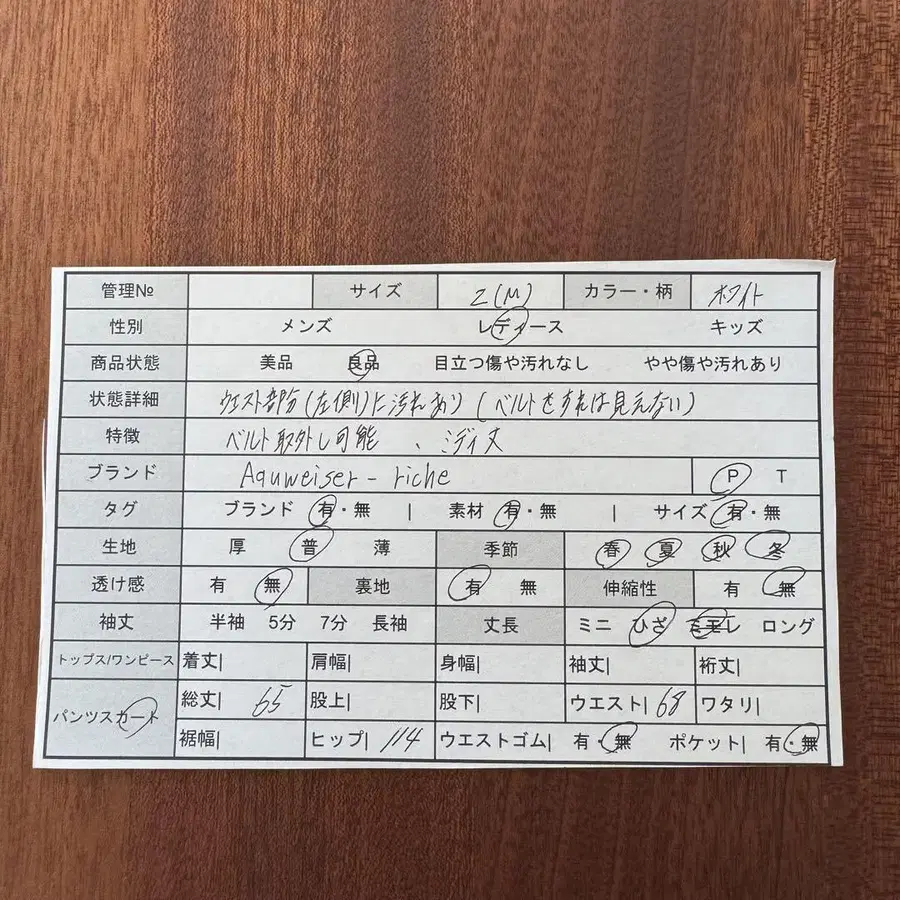 管理№ サイズ 2(M) カラー・柄 ホワイト
性別 メンズ レディース キッズ
商品状態 美品 良品 目立つ傷や汚れなし やや傷や汚れあり
状態詳細 ウエスト部分(左側)に汚れあり(ベルトをすれば見えない)
特徴 ベルト取外し可能、ミディ丈
ブランド Aquweiser-riche P T
タグ ブランド 有・無 | 素材 有・無 | サイズ 有・無
生地 厚 普 薄 季節 春 夏 秋 冬
透け感 有 無 裏地 有 無 伸縮性 有 無
袖丈 半袖 5分 7分 長袖 丈長 ミニ ひざ ミモレ ロング
トップス/ワンピース 着丈| 肩幅| 身幅| 袖丈| 裄丈|
パンツスカート 総丈| 65 股上| 股下| ウエスト| 68 ワタリ|
裾幅| ヒップ| 114 ウエストゴム| 有・無 ポケット| 有・無